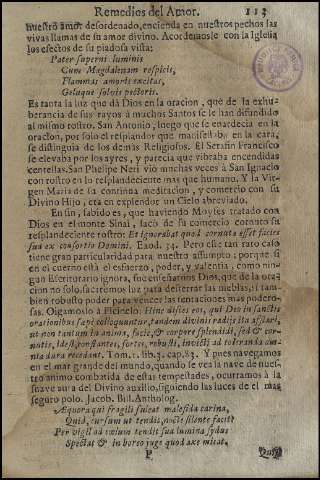 Remedios del Amor. 113
nuestro amor desordenado, encienda en nuestros pechos las
vivas llamas de su amor divino. Acordemosle con la Iglesia
los efectos de su piadosa vista:
Pater superni luminis
Cum Magdalenam respicis,
Flammas amoris excitas,
Geluque solvis pectoris.
Es tanta la luz que dá Dios en la oracion, que de la exhu-
berancia de sus rayos à muchos Santos se le han difundido
al mismo rostro. San Antonio, luego que se enardecia en la
oracion, por solo el resplandor que manifestaba en la cara,
se distinguia de los demàs Religiosos. El Serafin Francisco
se elevaba por los ayres, y parecia que vibraba encendidas
centellas. San Phelipe Neri viò muchas veces à San Ignacio
con rostro en lo resplandeciente mas que humano. Y la Vir-
gen Maria de su continua meditacion, y comercio con su
Divino Hijo, era en explendor un Cielo abreviado.
En fin, sabido es, que haviendo Moyses tratado con
Dios en el monte Sinai, sacò de su comercio cornuto su
resplandeciente rostro: Et ignorabat quod cornuta esset facies
sua ex consortio Domini. Exod. 34. Pero este tan raro caso
tiene gran particularidad para nuestro assumpto; porque si
en el cuerno està el esfuerzo, poder, y valentia, como nin-
gun Escriturario ignora, fue enseñarnos Dios, que de la ora-
cion no solo se sacamos luz para desterrar las nieblas, si tam-
bien robusto poder para vencer las tentaciones mas podero-
sas. Oigamoslo à Ficinelo: Hinc disces eos, qui Deo in sanctis
orationibus sæpe colloquuntur, tandem divinis radijs ita afflari,
ut non tantum in animo, facie, & corpore splendidi, sed & cor-
nutis, idest, constantes, fortes, robusti, invicti ad toleranda cun-
cta dura recedant. Tom. 1. lib. 3. cap. 83. Y pues navegamos
en el mar grande del mundo, quando se vea la nave de nues-
tro animo combatida de estas tempestades, ocurramos à la
suave aura del Divino auxilio, siguiendo las luces de el mas
seguro polo. Jacob. Bill. Antholog.
Æquora qui fragili sulcat malesida carina,
Quid, cursum ut tendit, nocte silente facit?
Per vigil ad cœlum tendit sua lumina sydus
Spectat & in boreo juge quod axe micat.
P